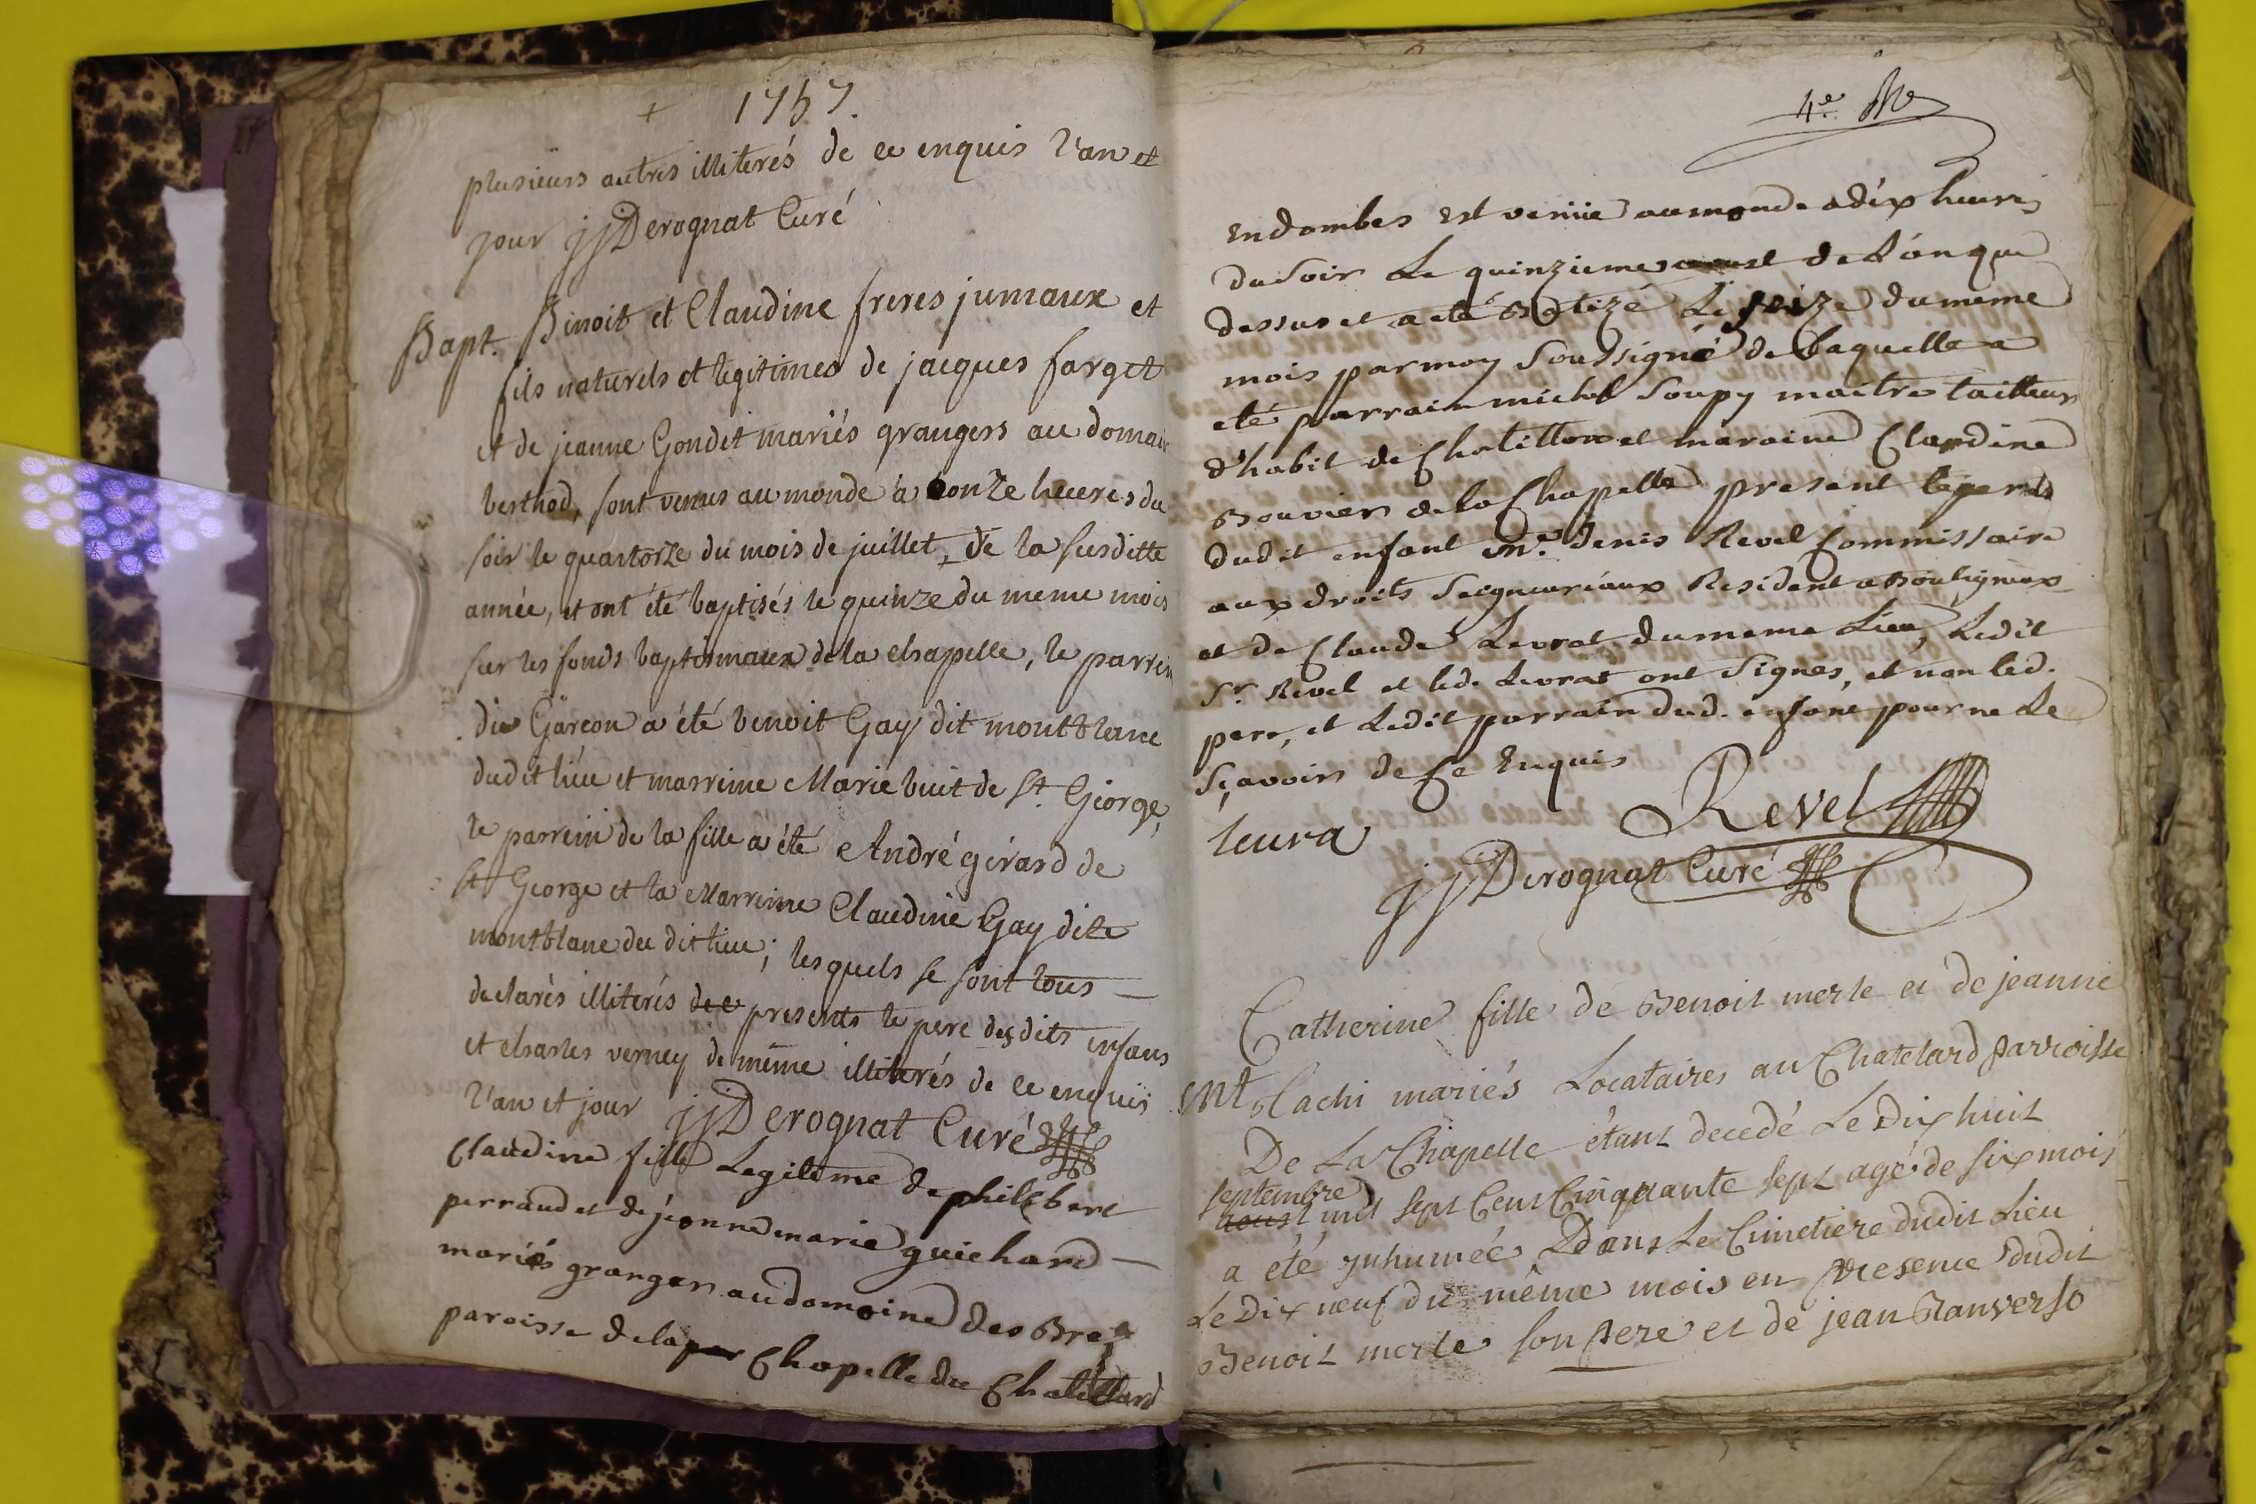 1757.
plusieurs autres illiterés de ce enquis l'an et
jour jjDerognat Curé
Bapt. Binoit et Claudine freres jumaux et
fils naturels et legitimes de jacques farget
et de jeanne Gondet mariés grangers au domai
berthod, sont venus au monde à onze heures du
soir le quartorze du mois de juillet, de la susditte
année, et ont été baptisés le quinze du meme mois
sur les fonds baptismaux de la chapelle, le parrin
du Garcon a été benoit Gay dit montblanc
dudit lieu et marreine Marie buit de St. George,
le parrein de la fille a été André girard de
St George et la Marreine Claudine Gay dite
montblanc du dit lieu; lesquels se sont tous
declarés illiterés de ce presents le pere desdits enfans
et charles verney de même illiterés de ce enquis
l'an et jour jjDerognat Curé
Claudine fille Legitime de philibert
perraud et de jeanne marie guichard
mariés granger au domaine des Bre
paroisse de la par Chapelle du Chatellard
4e
en dombes est venüe au monde a dix heures
du soir Le quinzieme aoust de L'an que
dessus et a eté Batizé Le seize du meme
mois par moy Soussigné de Laquelle a
eté parrain michel Soupy maitre tailleur
d'habit de Chatillon et maraine Claudine
Bouvier de la Chapelle present le pere
dudit enfant Me. Denis Revel Commissaire
aux droits Seigneuriaux Resident a Bouligneux
et de Claude Levrat du meme Lieu, Ledit
Sr. Revel et led. Levrat ont Signés, et non led.
pere, et Ledit parrain dud. enfant pour ne Le
Sçavoir de Ce Enquis
leura Revel
jjDerognat Curé
Catherine fille de Benoit merle et de jeanne
Mt. Cachi mariés Locataires au Chatelard parroisse
De La Chapelle étant decedé Le Dix huit
septembre
aoust mil sept Cent Cinquante sept agé de six mois
a été inhumée Dans Le Cimetiere dudit Lieu
Le Dix neuf du même mois en presence dudit
Benoit merle son pere et de jean Ranverso